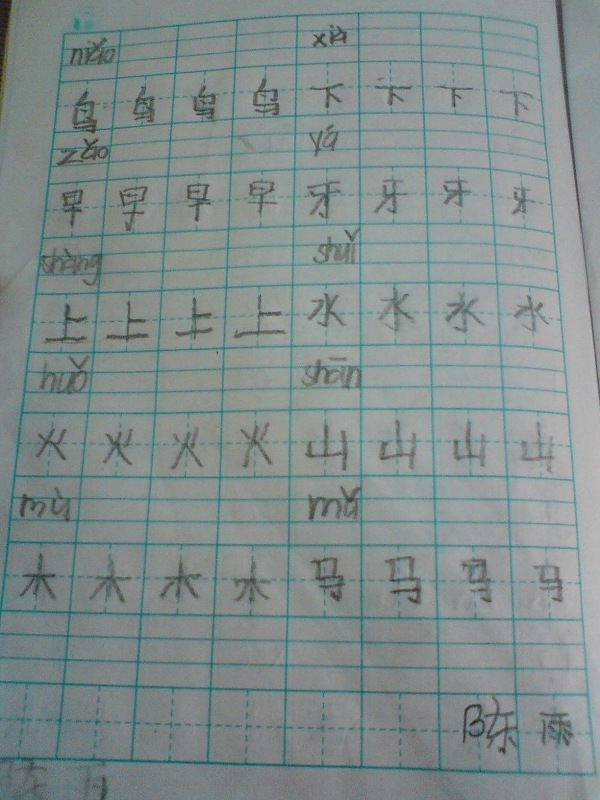 niǎo xià
鸟 鸟 鸟 鸟 下 下 下 下
zǎo yá
早 早 早 早 牙 牙 牙 牙
shàng shuǐ
上 上 上 上 水 水 水 水
huǒ shān
火 火 火 火 山 山 山 山
mù mǎ
木 木 木 木 马 马 马 马
陈 雨